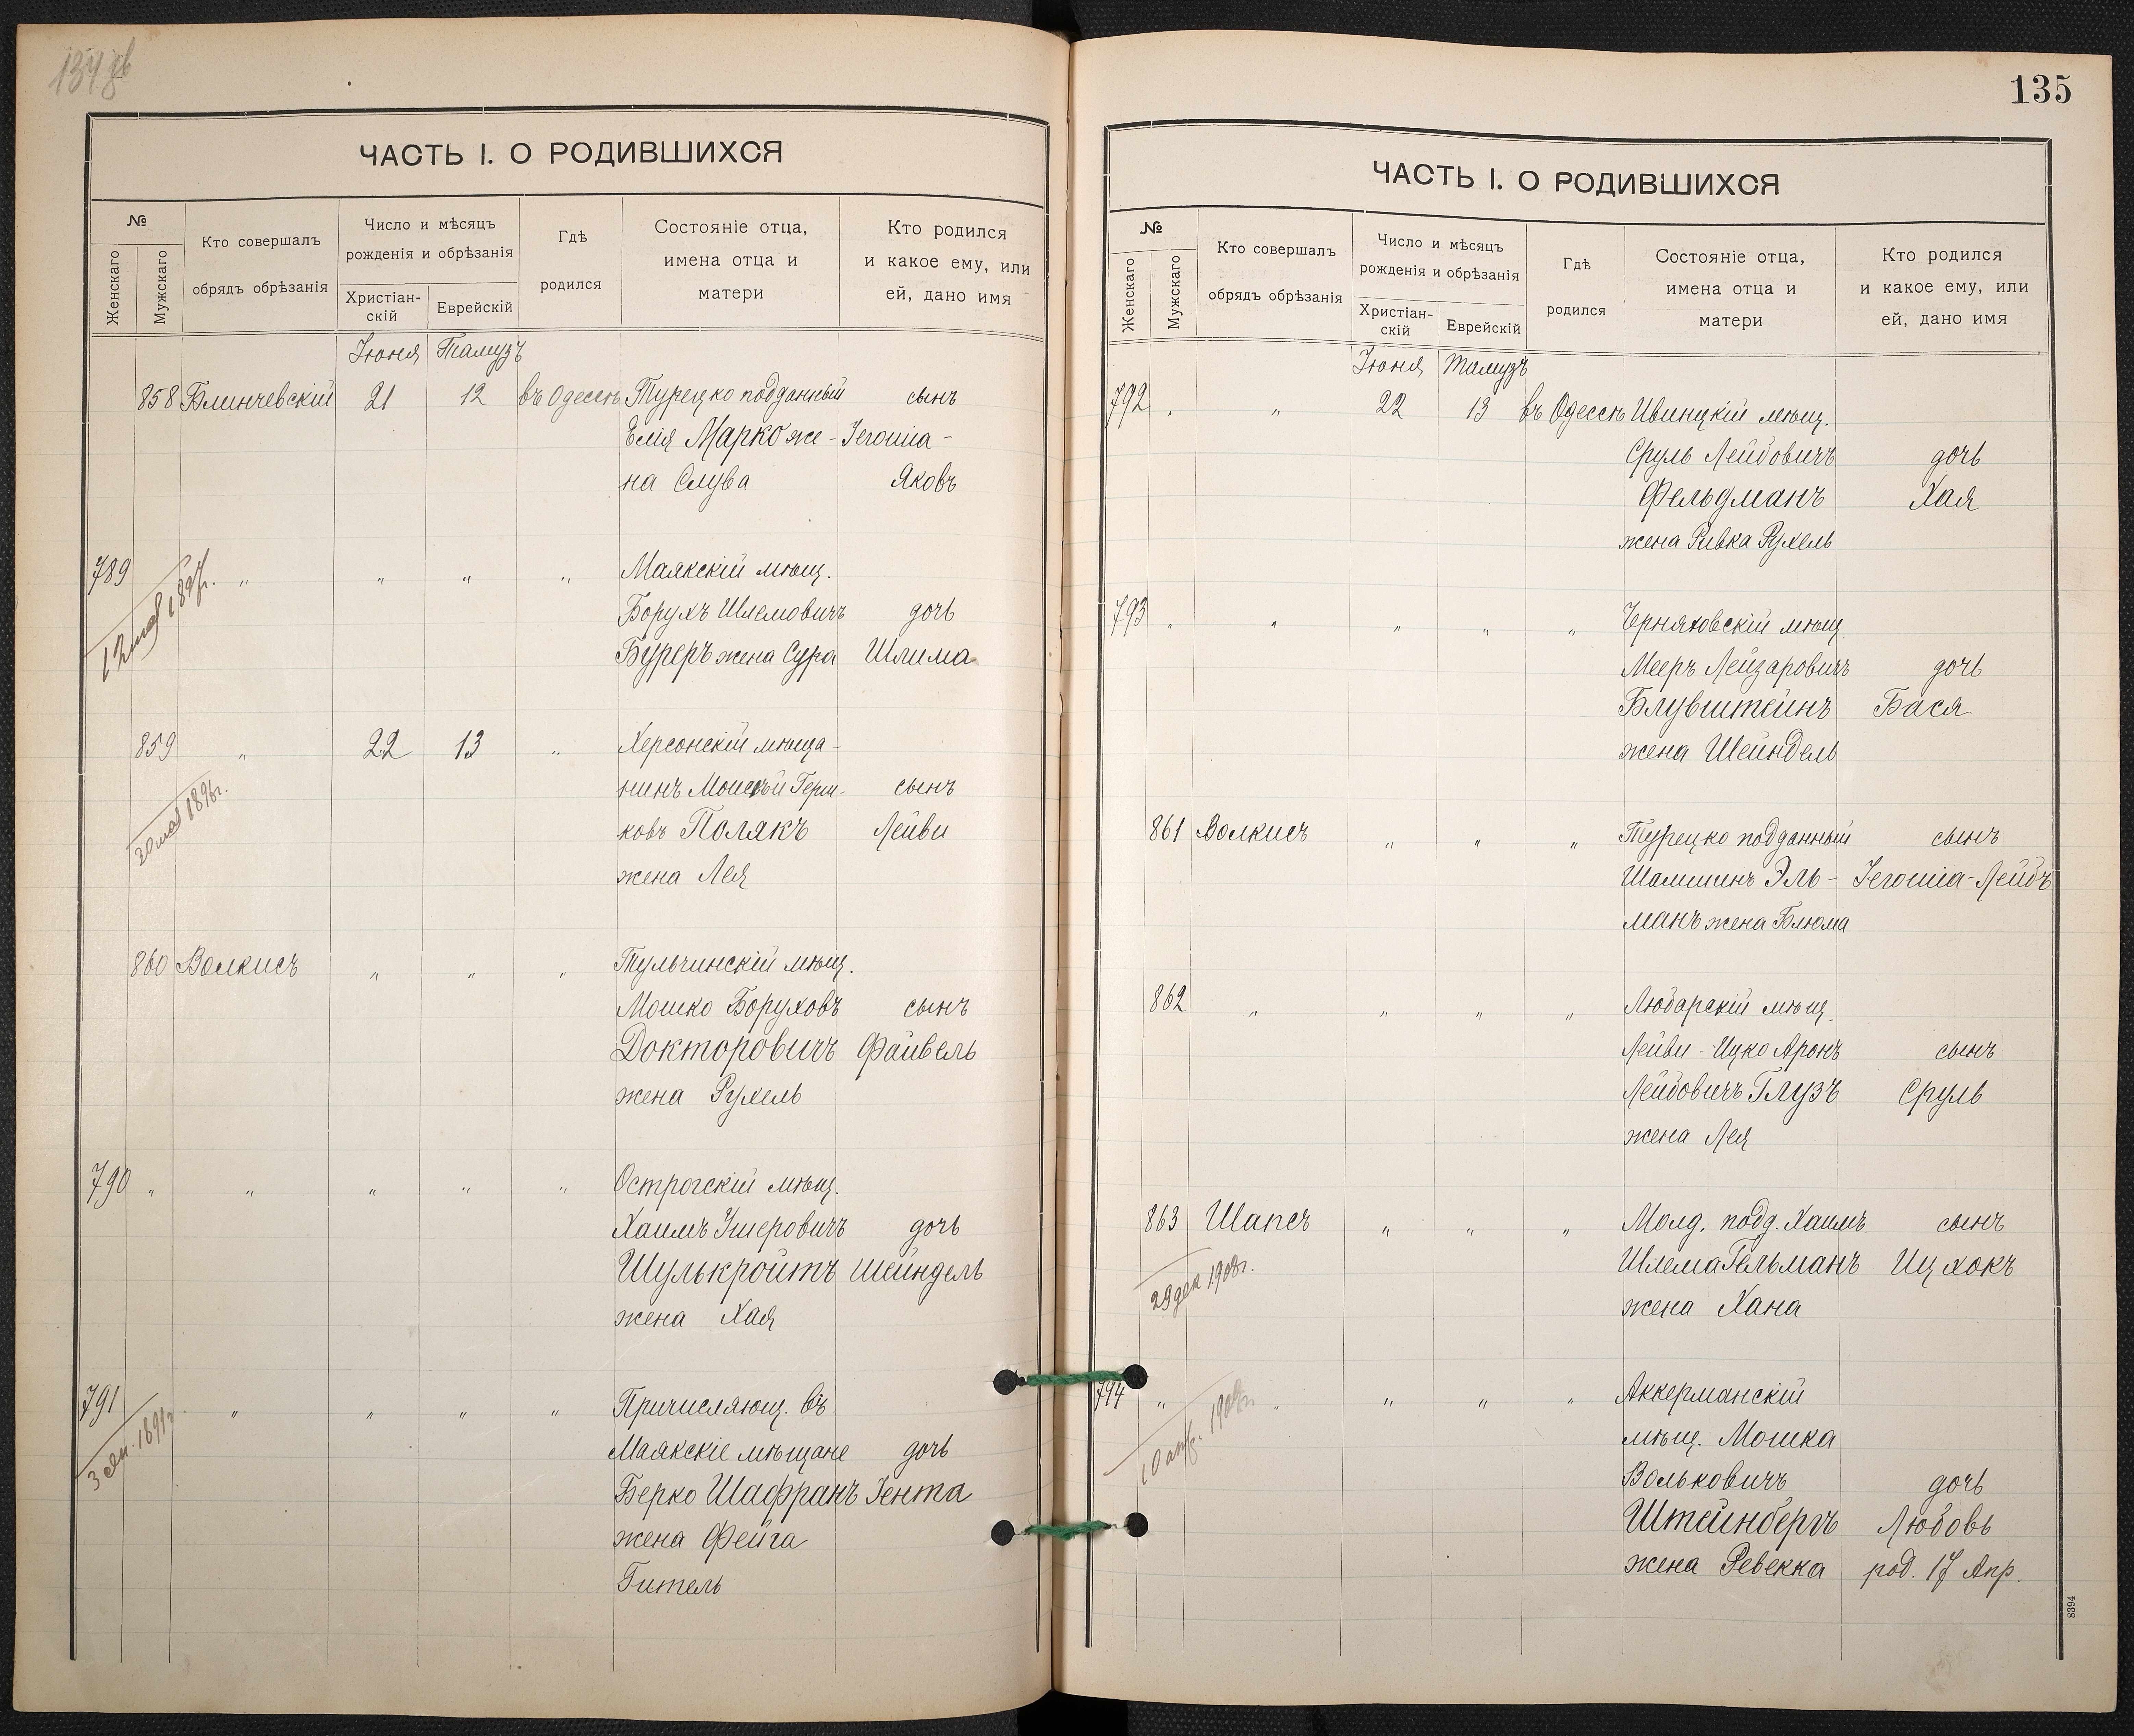 134 об
ЧАСТЬ I. О РОДИВШИХСЯ
№
Женскаго
Мужскаго
Кто совершалъ
обрядъ обрѣзанія
Число и мѣсяцъ
рожденія и обрѣзанія
Христіан-
скій
Еврейскій
Гдѣ
родился
Состояніе отца,
имена отца и
матери
Кто родился
и какое ему, или
ей, дано имя
Іюня Тамузъ
858 Блинчевскій 21 12 въ Одессѣ Турецко подданный сынъ
Елія Марко же- Іегошіа-
на Слува Яковъ
789 " " " " Маякскій мѣщ.
Борухъ Шлемовичъ дочь
Буреръ жена Сура Шлима
12 мая 1897г.
859 " 22 13 " Херсонскій мѣща-
нинъ Мошсѣй Герш- сынъ
ковъ Полякъ Лейви
жена Лея
20 мая 1896г.
860 Волкисъ " " " Тульчинскій мѣщ.
Мошко Боруховъ сынъ
Докторовичъ Файвель
жена Рухель
790 " " " " " Острогскій мѣщ.
Хаимъ Ушеровичъ дочь
Шулькройтъ Шейндель
жена Хая
791 " " " " Причисляющ. въ
Маякскіе мѣщане дочь
Берко Шафранъ Іента
жена Фейга
Гитель
3 сен. 1891г
135
ЧАСТЬ I. О РОДИВШИХСЯ
№
Женскаго
Мужскаго
Кто совершалъ
обрядъ обрѣзанія
Число и мѣсяцъ
рожденія и обрѣзанія
Христіан-
скій
Еврейскій
Гдѣ
родился
Состояніе отца,
имена отца и
матери
Кто родился
и какое ему, или
ей, дано имя
Іюня Тамузъ
792 " " 22 13 въ Одессѣ Ивницкій мѣщ.
Сруль Лейбовичъ дочь
Фельдманъ Хая
жена Ривка Рухель
793 " " " " " Черняховскій мѣщ.
Мееръ Лейзаровичъ дочь
Блувштейнъ Бася
жена Шейндель
861 Волкисъ " " " Турецко подданный сынъ
Шамшинъ Эль- Іегошіа-Лейбъ
манъ жена Блюма
862 " " " " Любарскій мѣщ.
Лейви-Ицко Аронъ сынъ
Лейбовичъ Глузъ Сруль
жена Лея
863 Шапсъ " " " Молд. подд. Хаимъ сынъ
Шлема Гельманъ Ицхокъ
жена Хана
29 дек 1908г.
794 " " " " " Аккерманскій
мѣщ. Мошка
Вольковичъ дочь
Штейнбергъ Любовь
жена Ревекка род. 17 Апр.
10 апр. 1908г.
8394